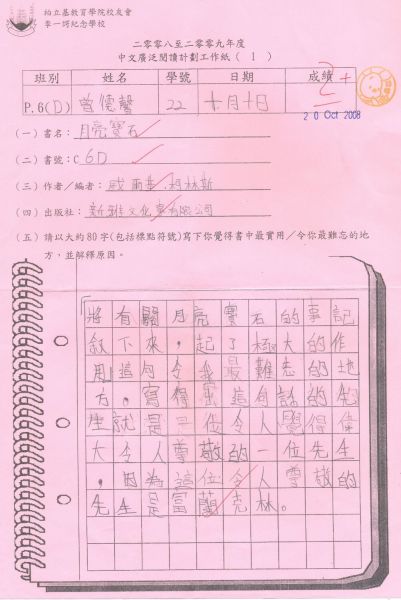 柏立基教育學院校友會
李一諤紀念學校
二零零八至二零零九年度
中文廣泛閱讀計劃工作紙(1)
班別 姓名 學號 日期 成績
P.6(D) 曾德馨 22 十月十日 2+
20 Oct 2008
(一)書名:月亮寶石
(二)書號:C 6D
(三)作者/編者:威爾基.柯林斯
(四)出版社:新雅文化事業有限公司
(五)請以大約80字(包括標點符號)寫下你覺得書中最實用/令你最難忘的地
方,並解釋原因。
「
將有關月亮寶石的事記
敘下來,起了極大的作
用」這句令我最難忘的地
方,寫得出這句話的先
生就是一位令人覺得偉
大令人尊敬的一位先生
,因為這位令人尊敬的
先生是富蘭克林。